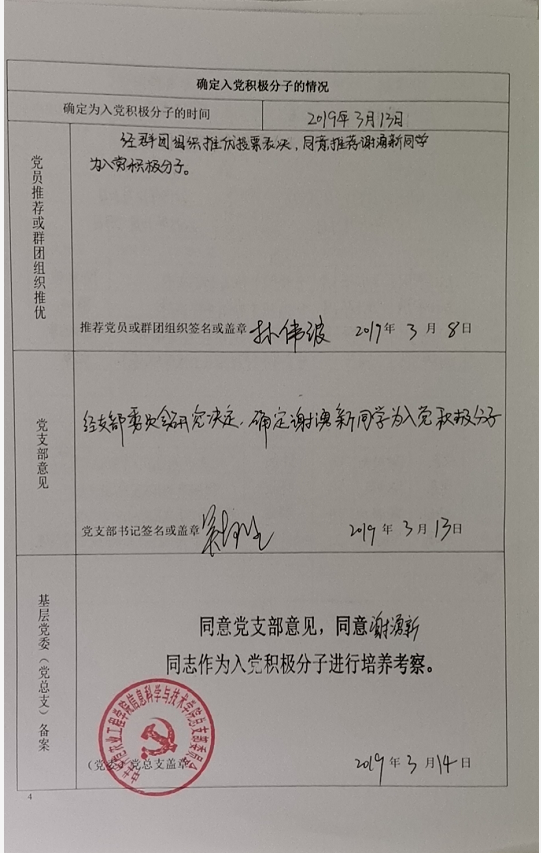 确定入党积极分子的情况
确定为入党积极分子的时间
2019年3月13日
党员推荐或群团组织推优
经群团组织推优投票表决，同意推荐谢湧新同学
为入党积极分子。
推荐党员或群团组织签名或盖章 孙伟波 2019年 3 月 8 日
党支部意见
经支部委员会研究决定，确定谢湧新同学为入党积极分子
党支部书记签名或盖章
2019 年 3 月 13 日
基层党委（党总支）备案
同意党支部意见，同意谢湧新
同志作为入党积极分子进行培养考察。
农业工程学院信息科学与技术学院总支部委员会
（党委）党总支盖章
2019 年 3 月 14 日
4